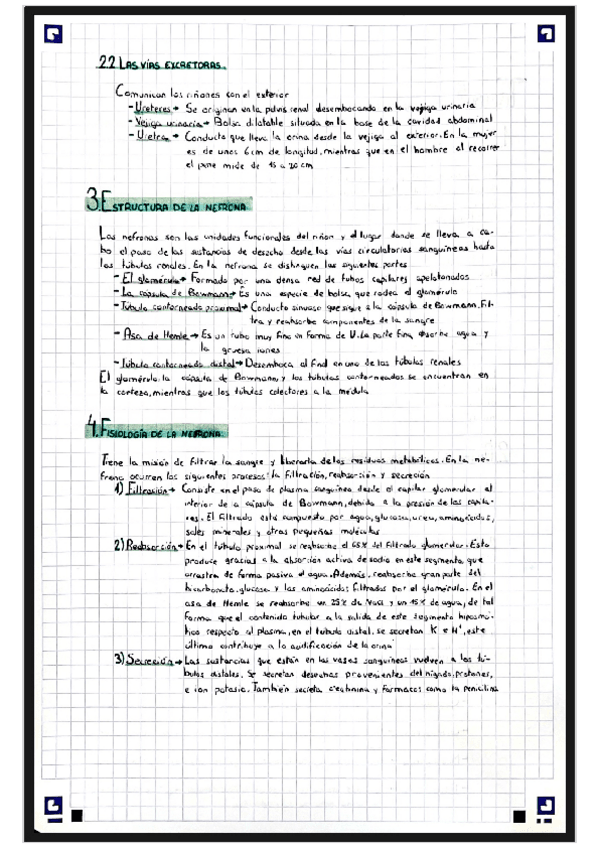 2.2 LAS VÍAS EXCRETORAS
Comunican los riñones con el exterior
- Ureteres → Se originan en la pelvis renal desembocando en la vejiga urinaria
- Vejiga urinaria → Bolsa dilatable situada en la base de la cavidad abdominal
- Uretra → Conducto que lleva la orina desde la vejiga al exterior. En la mujer
es de unos 6 cm de longitud, mientras que en el hombre al recorrer
el pene mide de 15 a 20 cm
3. ESTRUCTURA DE LA NEFRONA
Las nefronas son las unidades funcionales del riñon y el lugar donde se lleva a ca-
bo el paso de las sustancias de desecho desde las vías circulatorias sanguíneas hasta
los túbulos renales. En la nefrona se distinguen las siguientes partes
- El glomérulo → Formado por una densa red de tubos capilares apelotonados
- La cápsula de Bowmann → Es una especie de bolsa que rodea el glomérulo
- Túbulo contorneado proximal → Conducto sinuoso que sigue a la cápsula de Bowmann. Fil-
tra y reabsorbe componentes de la sangre
- Asa de Hemle → Es un tubo muy fino en forma de U. La parte fina absorbe agua y
la gruesa iones
- Túbulo contorneado distal → Desemboca al final en uno de los túbulos renales
El glomérulo, la cápsula de Bowmann y los túbulos contorneados se encuentran en
la corteza, mientras que los túbulos colectores a la médula
4. FISIOLOGÍA DE LA NEFRONA
Tiene la misión de filtrar la sangre y liberarla de los residuos metabólicos. En la ne-
frona ocurren los siguientes procesos: la filtración, reabsorción y secreción
1) Filtración → Consiste en el paso de plasma sanguíneo desde el capilar glomerular al
interior de la cápsula de Bowmann, debido a la presión de los capila-
res. El filtrado está compuesto por agua, glucosa, urea, aminoácidos,
sales minerales y otras pequeñas moléculas
2) Reabsorción → En el túbulo proximal se reabsorbe el 65% del filtrado glomerular. Esto
produce gracias a la absorción activa de sodio en este segmento, que
arrastra de forma pasiva el agua. Además, reabsorbe gran parte del
bicarbonato, glucosa y los aminoácidos filtrados por el glomérulo. En el
asa de Hemle se reabsorbe un 25% de NaCl y un 15% de agua, de tal
forma que el contenido tubular a la salida de este segmento hiposmó-
tico respecto al plasma, en el túbulo distal, se secretan K e H⁺, este
último contribuye a la acidificación de la orina
3) Secreción → Las sustancias que están en los vasos sanguíneos vuelven a los tú-
bulos distales. Se secretan desechos provenientes del hígado, protones,
e ion potasio. También secreta creatinina y fármacos como la penicilina